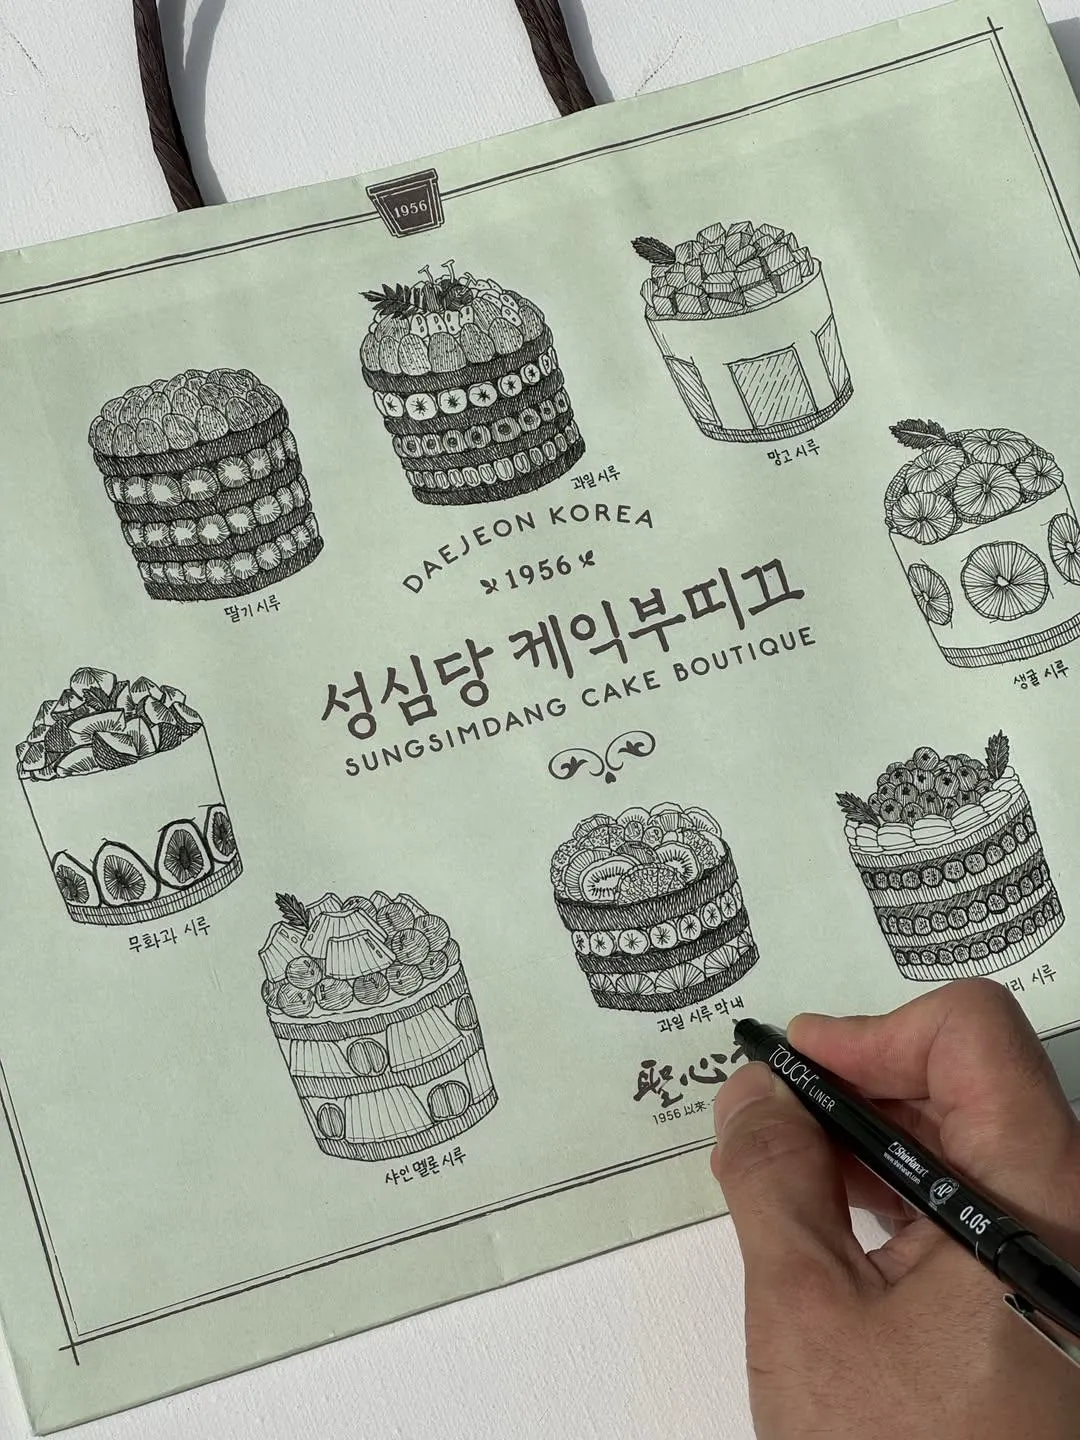 1956
딸기 시루
과일 시루
망고 시루
생귤 시루
DAEJEON KOREA
1956
성심당 케익부띠끄
SUNGSIMDANG CAKE BOUTIQUE
무화과 시루
샤인 멜론 시루
과일 시루 막내
시루
聖心
1956 以來
TOUCH LINER
ShinHanart
www.shinhanart.com
AP
0.05